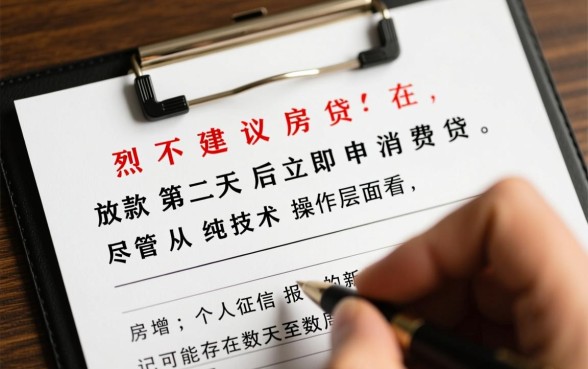 烈不建议房贷！在，
放款 第二天 后立即申消费贷。
尽管 从 纯技术 操作层面看，
房增；个人征信 报 的新
记可能存在数天至数周